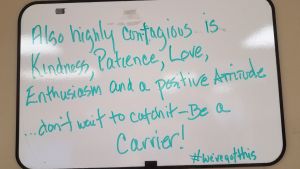 Also highly contagious is
Kindness, Patience, Love,
Enthusiasm and a positive Attitude
...don't wait to catch it - Be a
Carrier!
#wevegotthis